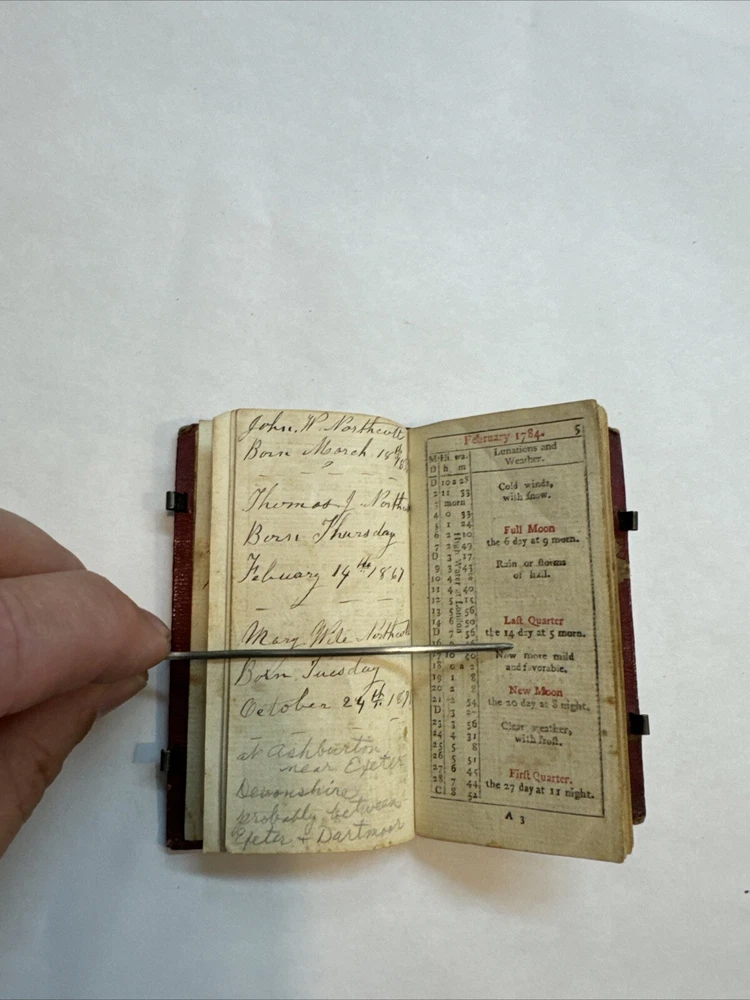 John. W. Northcott
Born March 18th
Thomas J. North
Born Thursday
Febuary 14th 1867
Mary Northcott
Born Tuesday
October 24th. 187
at Ashburton
near Exeter
Devonshire
probably between
Exeter + Dartmoor
February 1784. 5
M Hi. wa.
D h m
Lunations and
Weather.
Cold winds,
with snow.
Full Moon
the 6 day at 9 morn.
Rain or storms
of hail.
Last Quarter
the 14 day at 5 morn.
Now more mild
and favorable.
New Moon
the 20 day at 8 night.
Clear weather,
with frost.
First Quarter.
the 27 day at 11 night.
High Water at London
D 10 28
2 11 33
morn
4 0 33
5 1 24
6 2 10
7 2 49
D 3 17
9 3 43
10 4
11 4 40
12 5 15
14 6 50
D 7 56
19 1 8
20 2 8
21 2 54
D 3
23 3 56
24 4 31
25 5 8
26 5 51
27 6 45
28 7 44
C 8 52
A 3